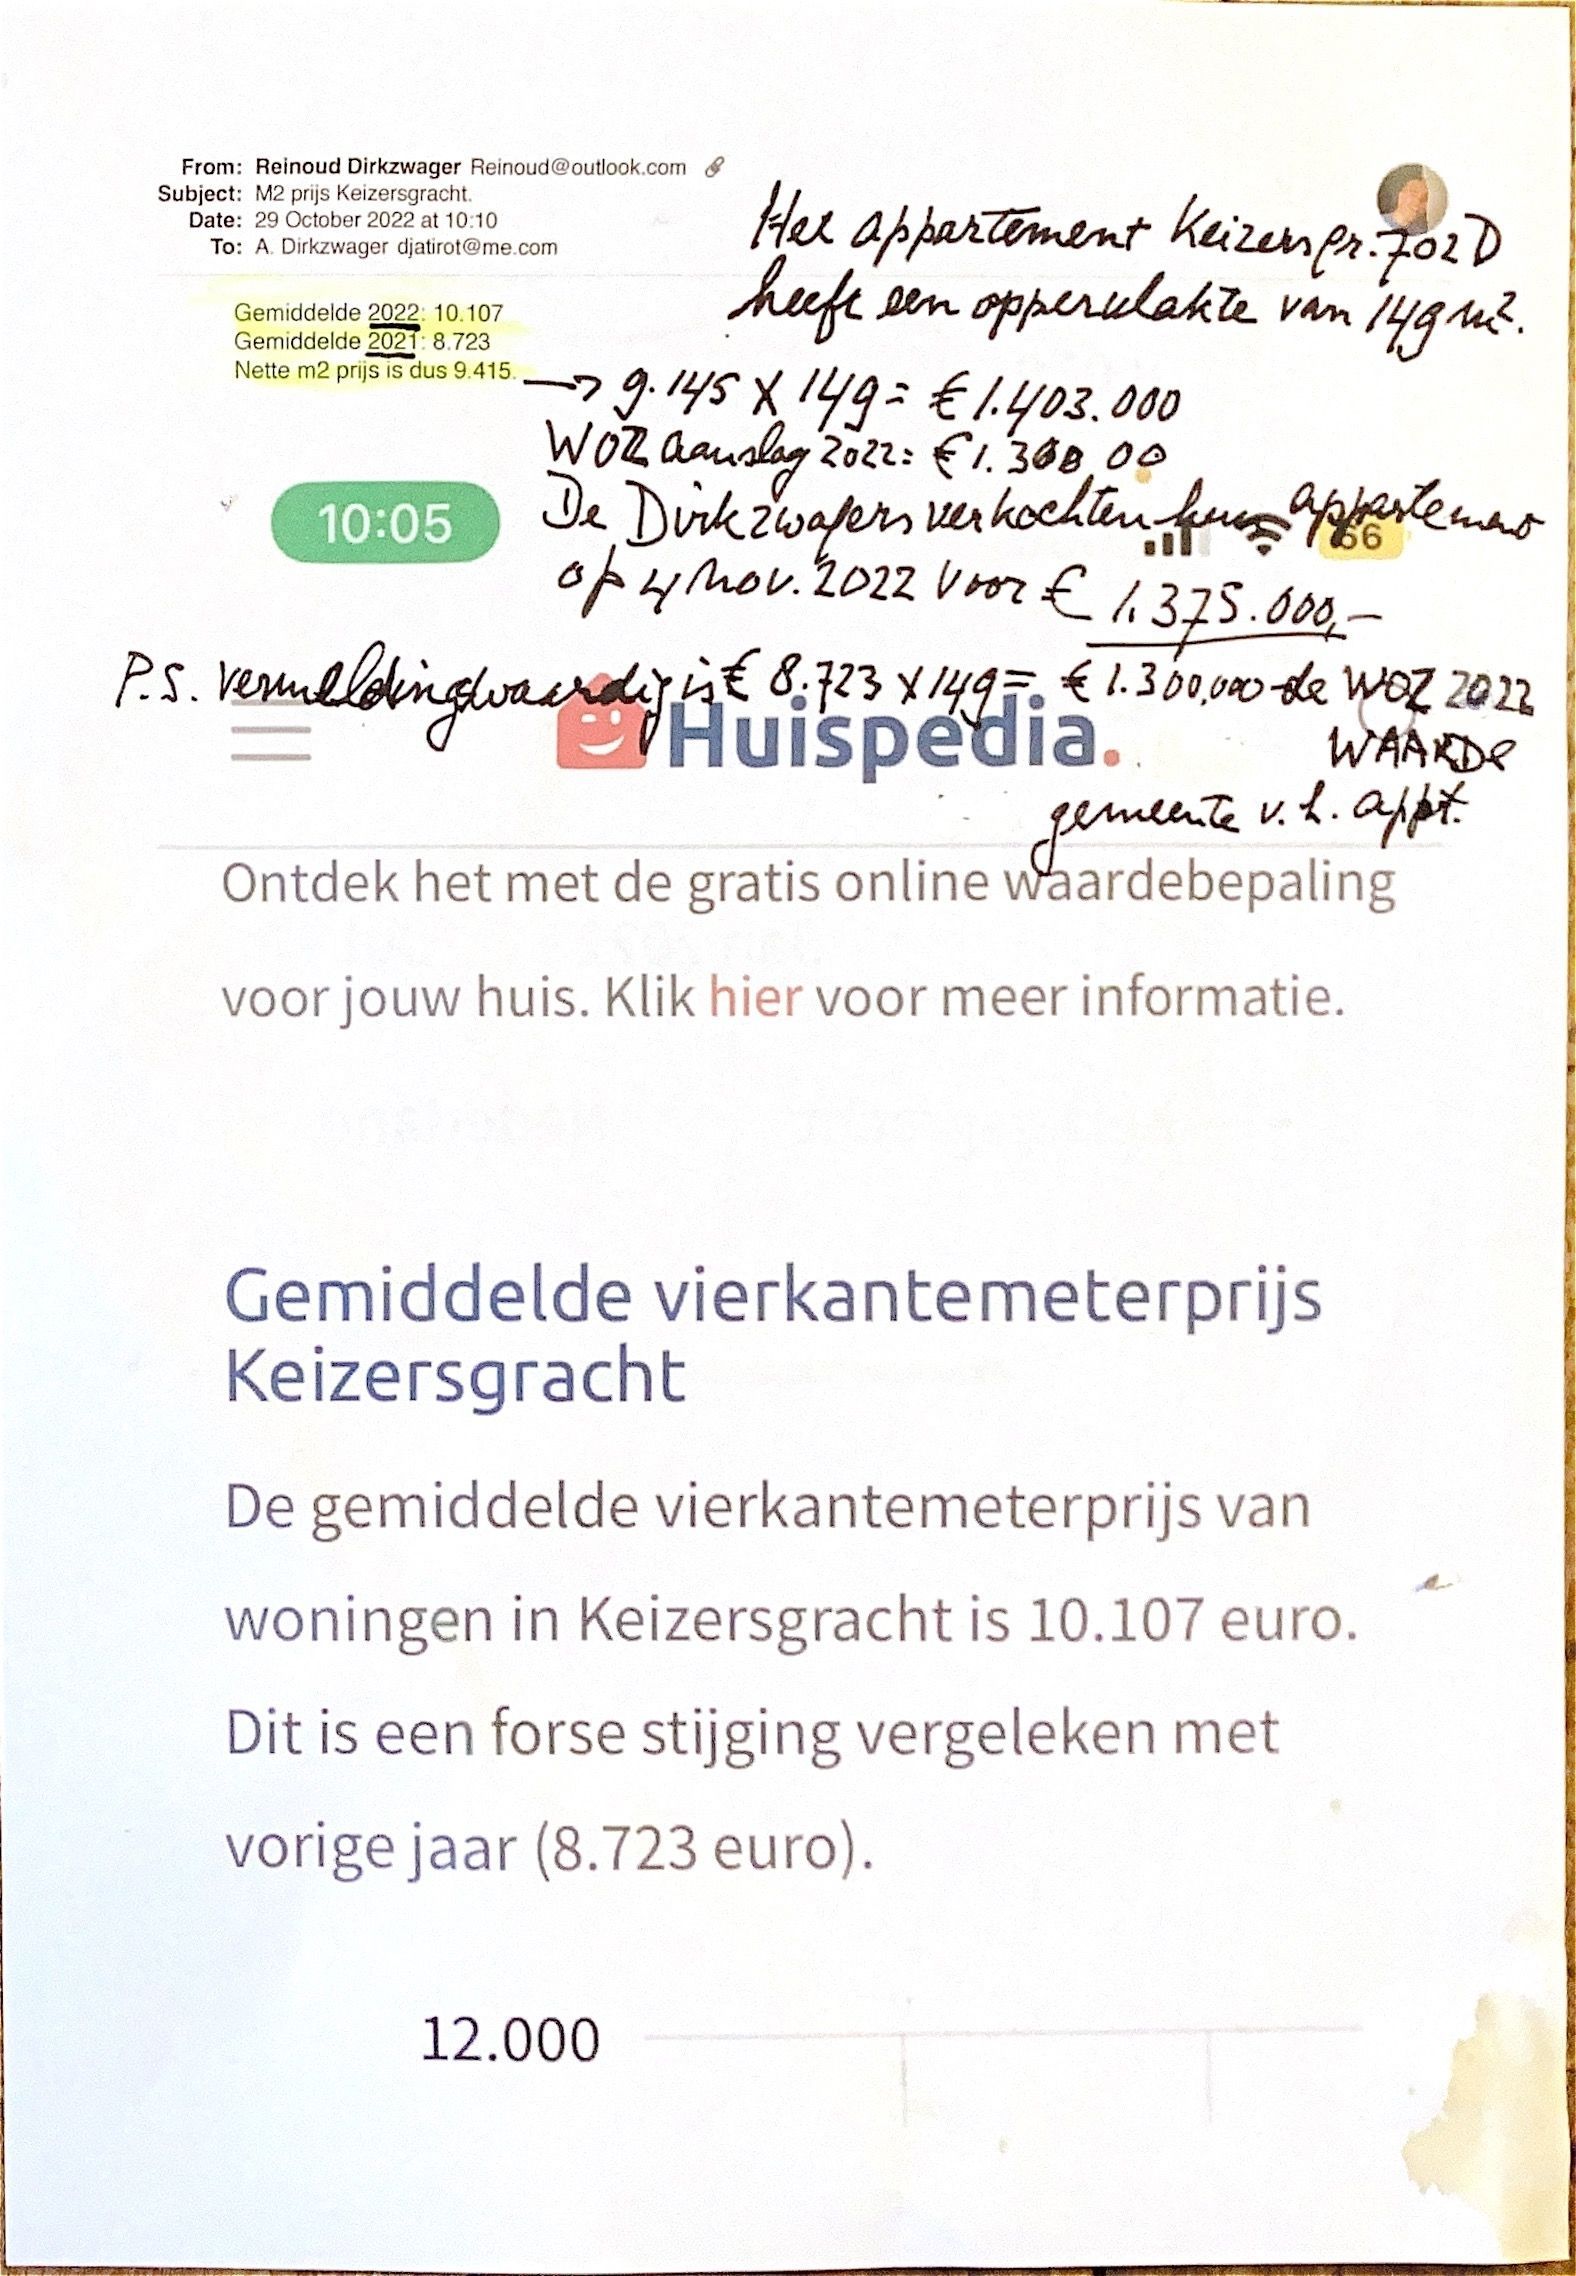 From: Reinoud Dirkzwager Reinoud@outlook.com
Subject: M2 prijs Keizersgracht.
Date: 29 October 2022 at 10:10
To: A. Dirkzwager djatirot@me.com
Het appartement Keizersgr. 702 D
heeft een oppervlakte van 149 m².
Gemiddelde 2022: 10.107
Gemiddelde 2021: 8.723
Nette m2 prijs is dus 9.415.
→ 9.145 X 149 = € 1.403.000
WOZ aanslag 2022: € 1.300 00
10:05
De Dirkzwagers verkochten hun appartement
66
op 4 nov. 2022 voor € 1.375.000,-
P.S. vermeldingwaardig is € 8.723 x 149 = € 1.300.000 de WOZ 2022
WAARDE
Huispedia.
gemeente v.h. appt.
Ontdek het met de gratis online waardebepaling
voor jouw huis. Klik hier voor meer informatie.
Gemiddelde vierkantemeterprijs
Keizersgracht
De gemiddelde vierkantemeterprijs van
woningen in Keizersgracht is 10.107 euro.
Dit is een forse stijging vergeleken met
vorige jaar (8.723 euro).
12.000